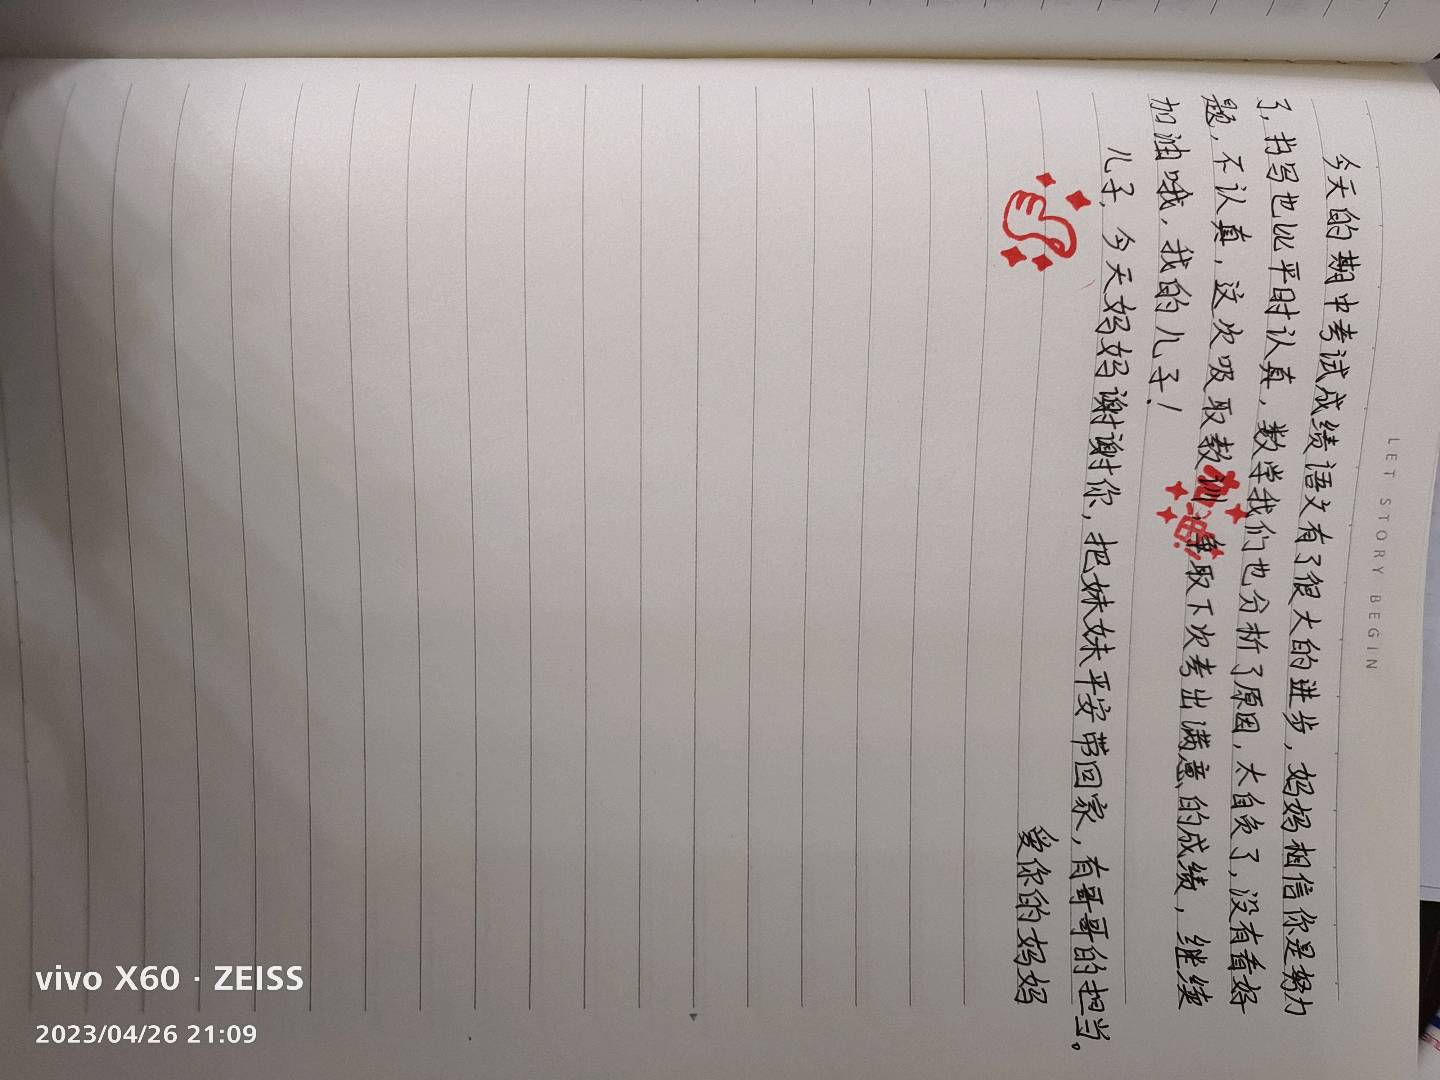 LET STORY BEGIN
今天的期中考试成绩语文有了很大的进步，妈妈相信你是努力
了，书写也比平时认真，数学我们也分析了原因，太自负了，没有看好
题，不认真，这次吸取教训，争取下次考出满意的成绩，继续
加油哦，我的儿子！
加油!
儿子，今天妈妈谢谢你，把妹妹平安带回家，有哥哥的担当。
爱你的妈妈
vivo X60 · ZEISS
2023/04/26 21:09